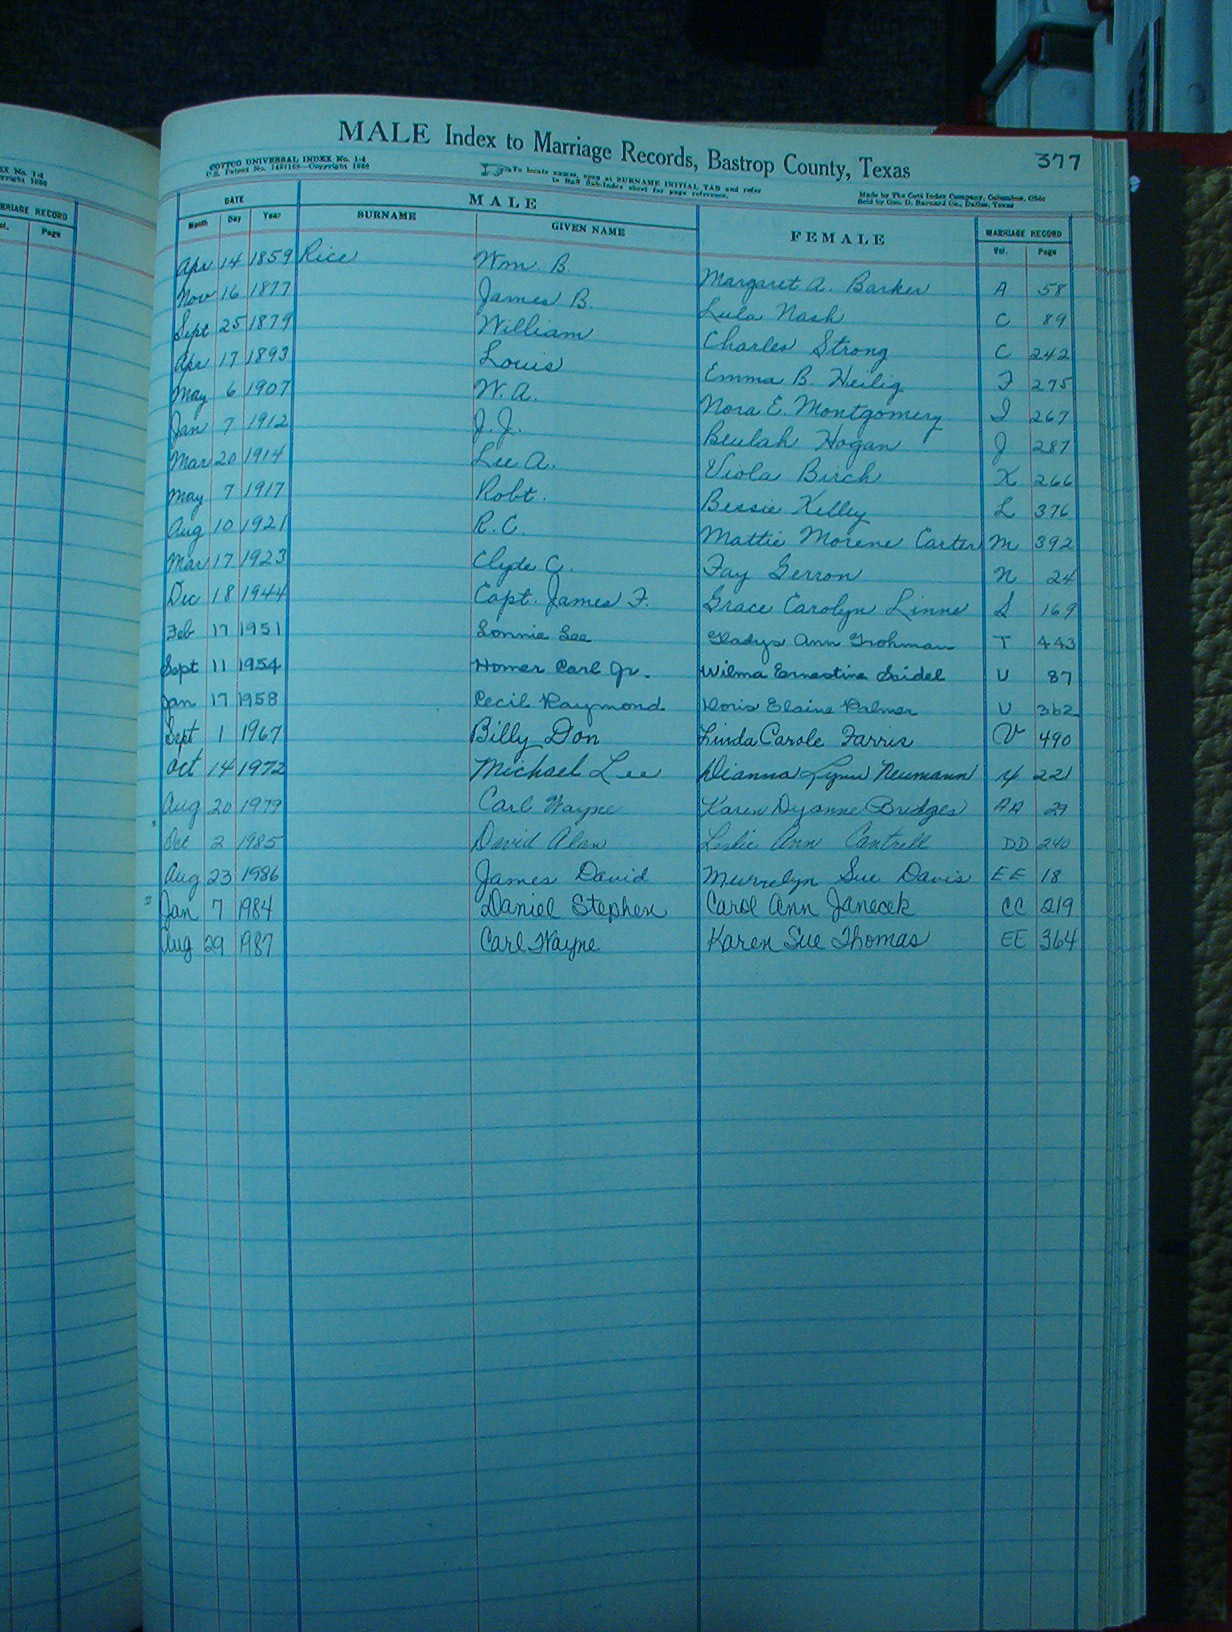 MALE Index to Marriage Records, Bastrop County, Texas 377
COTTCO UNIVERSAL INDEX No. 1-4
To locate names, open at SURNAME INITIAL TAB and refer
to Half Sub-Index sheet for page reference.
Made by The Cott Index Company, Columbus, Ohio
Sold by Geo. D. Barnard Co., Dallas, Texas
DATE MALE FEMALE MARRIAGE RECORD
Month Day Year SURNAME GIVEN NAME Vol. Page
Apr 14 1859 Rice Wm. B. Margaret A. Barker A 58
Nov 16 1877 James B. Lula Nash C 89
Sept 25 1879 William Charles Strong C 242
Apr 17 1893 Louis Emma B. Heilig F 275
May 6 1907 W. A. Nora E. Montgomery I 267
Jan 7 1912 J. J. Beulah Hogan J 287
Mar 20 1914 Lee A. Viola Birch K 266
May 7 1917 Robt. Bessie Kelley L 376
Aug 10 1921 R. C. Mattie Morene Carter M 392
Mar 17 1923 Clyde C. Fay Gerron N 24
Dec 18 1944 Capt. James F. Grace Carolyn Linne S 169
Feb 17 1951 Lonnie Lee Gladys Ann Grohman T 443
Sept 11 1954 Homer Carl Jr. Wilma Ernestine Seidel U 87
Jan 17 1958 Cecil Raymond Doris Elaine Palmer U 362
Sept 1 1967 Billy Don Linda Carole Farris V 490
Oct 14 1972 Michael Lee Dianna Lynn Neumann Y 221
Aug 20 1979 Carl Wayne Karen Dyanne Bridges AA 29
Oct 2 1985 David Alan Leslie Ann Cantrell DD 240
Aug 23 1986 James David Murrelyn Sue Davis EE 18
Jan 7 1984 Daniel Stephen Carol Ann Janecek CC 219
Aug 29 1987 Carl Wayne Karen Sue Thomas EE 364